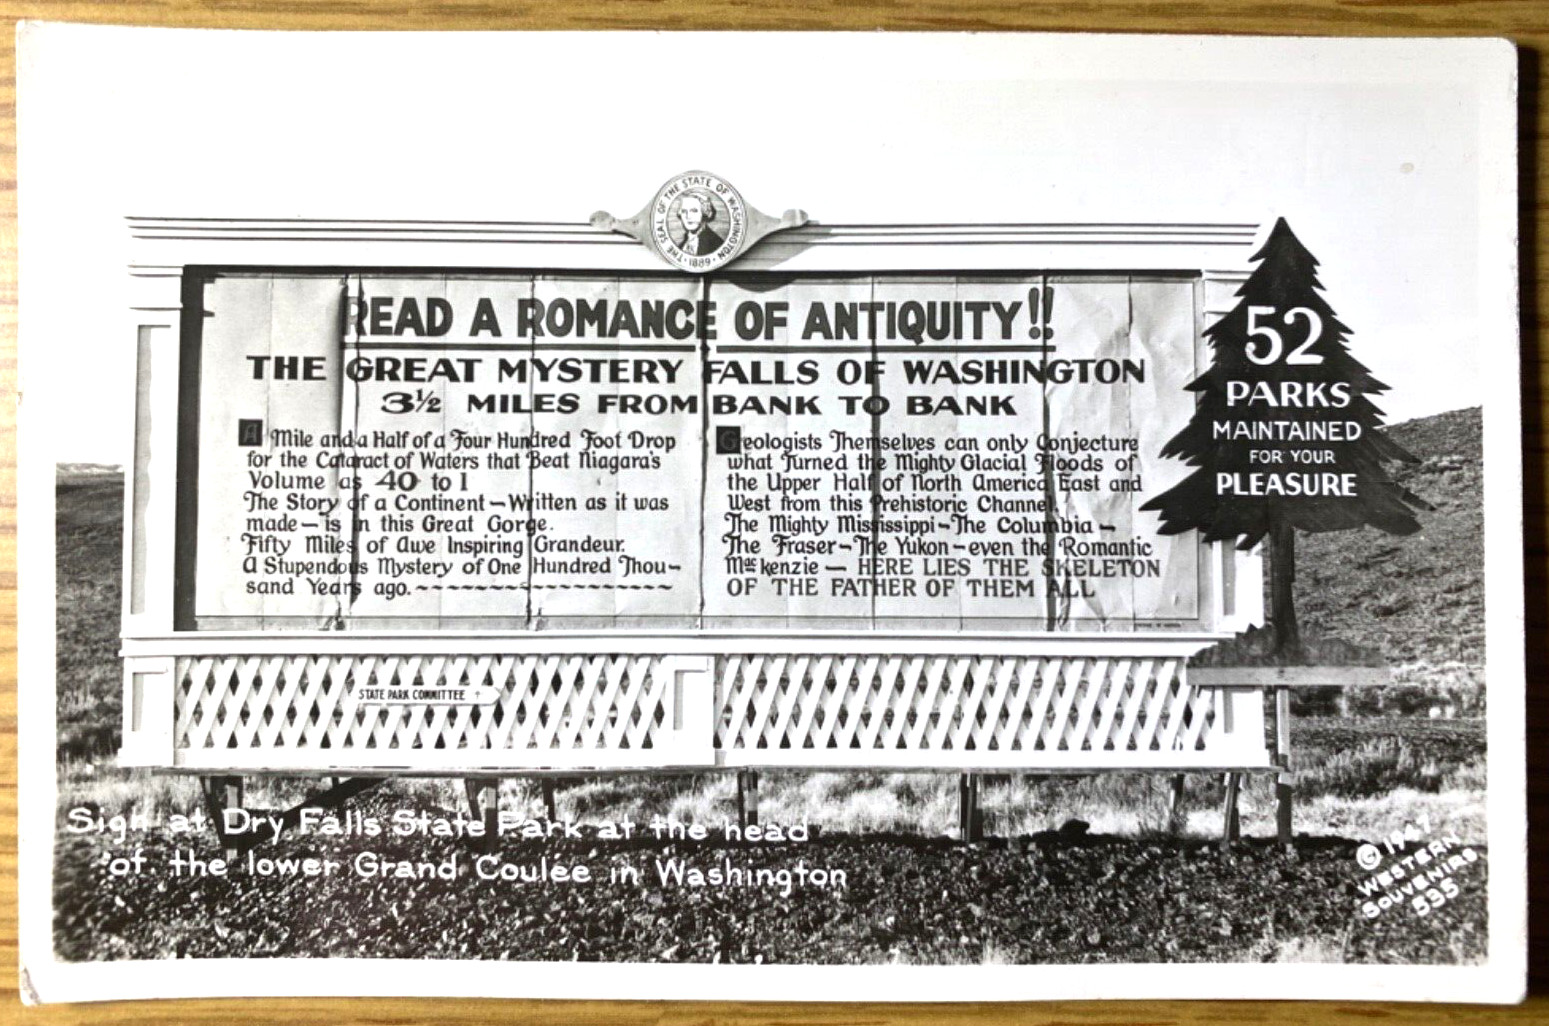 THE SEAL OF THE STATE OF WASHINGTON
1889
READ A ROMANCE OF ANTIQUITY!!
THE GREAT MYSTERY FALLS OF WASHINGTON
3½ MILES FROM BANK TO BANK
A Mile and a Half of a Four Hundred Foot Drop
for the Cataract of Waters that Beat Niagara's
Volume as 40 to 1
The Story of a Continent — Written as it was
made — is in this Great Gorge.
Fifty Miles of Awe Inspiring Grandeur.
A Stupendous Mystery of One Hundred Thou-
sand Years ago.
Geologists Themselves can only Conjecture
what Turned the Mighty Glacial Floods of
the Upper Half of North America East and
West from this Prehistoric Channel.
The Mighty Mississippi - The Columbia -
The Fraser - The Yukon - even the Romantic
Mackenzie — HERE LIES THE SKELETON
OF THE FATHER OF THEM ALL
52
PARKS
MAINTAINED
FOR YOUR
PLEASURE
STATE PARK COMMITTEE
Sign at Dry Falls State Park at the head
of the lower Grand Coulee in Washington
© 1947
WESTERN
SOUVENIRS
535